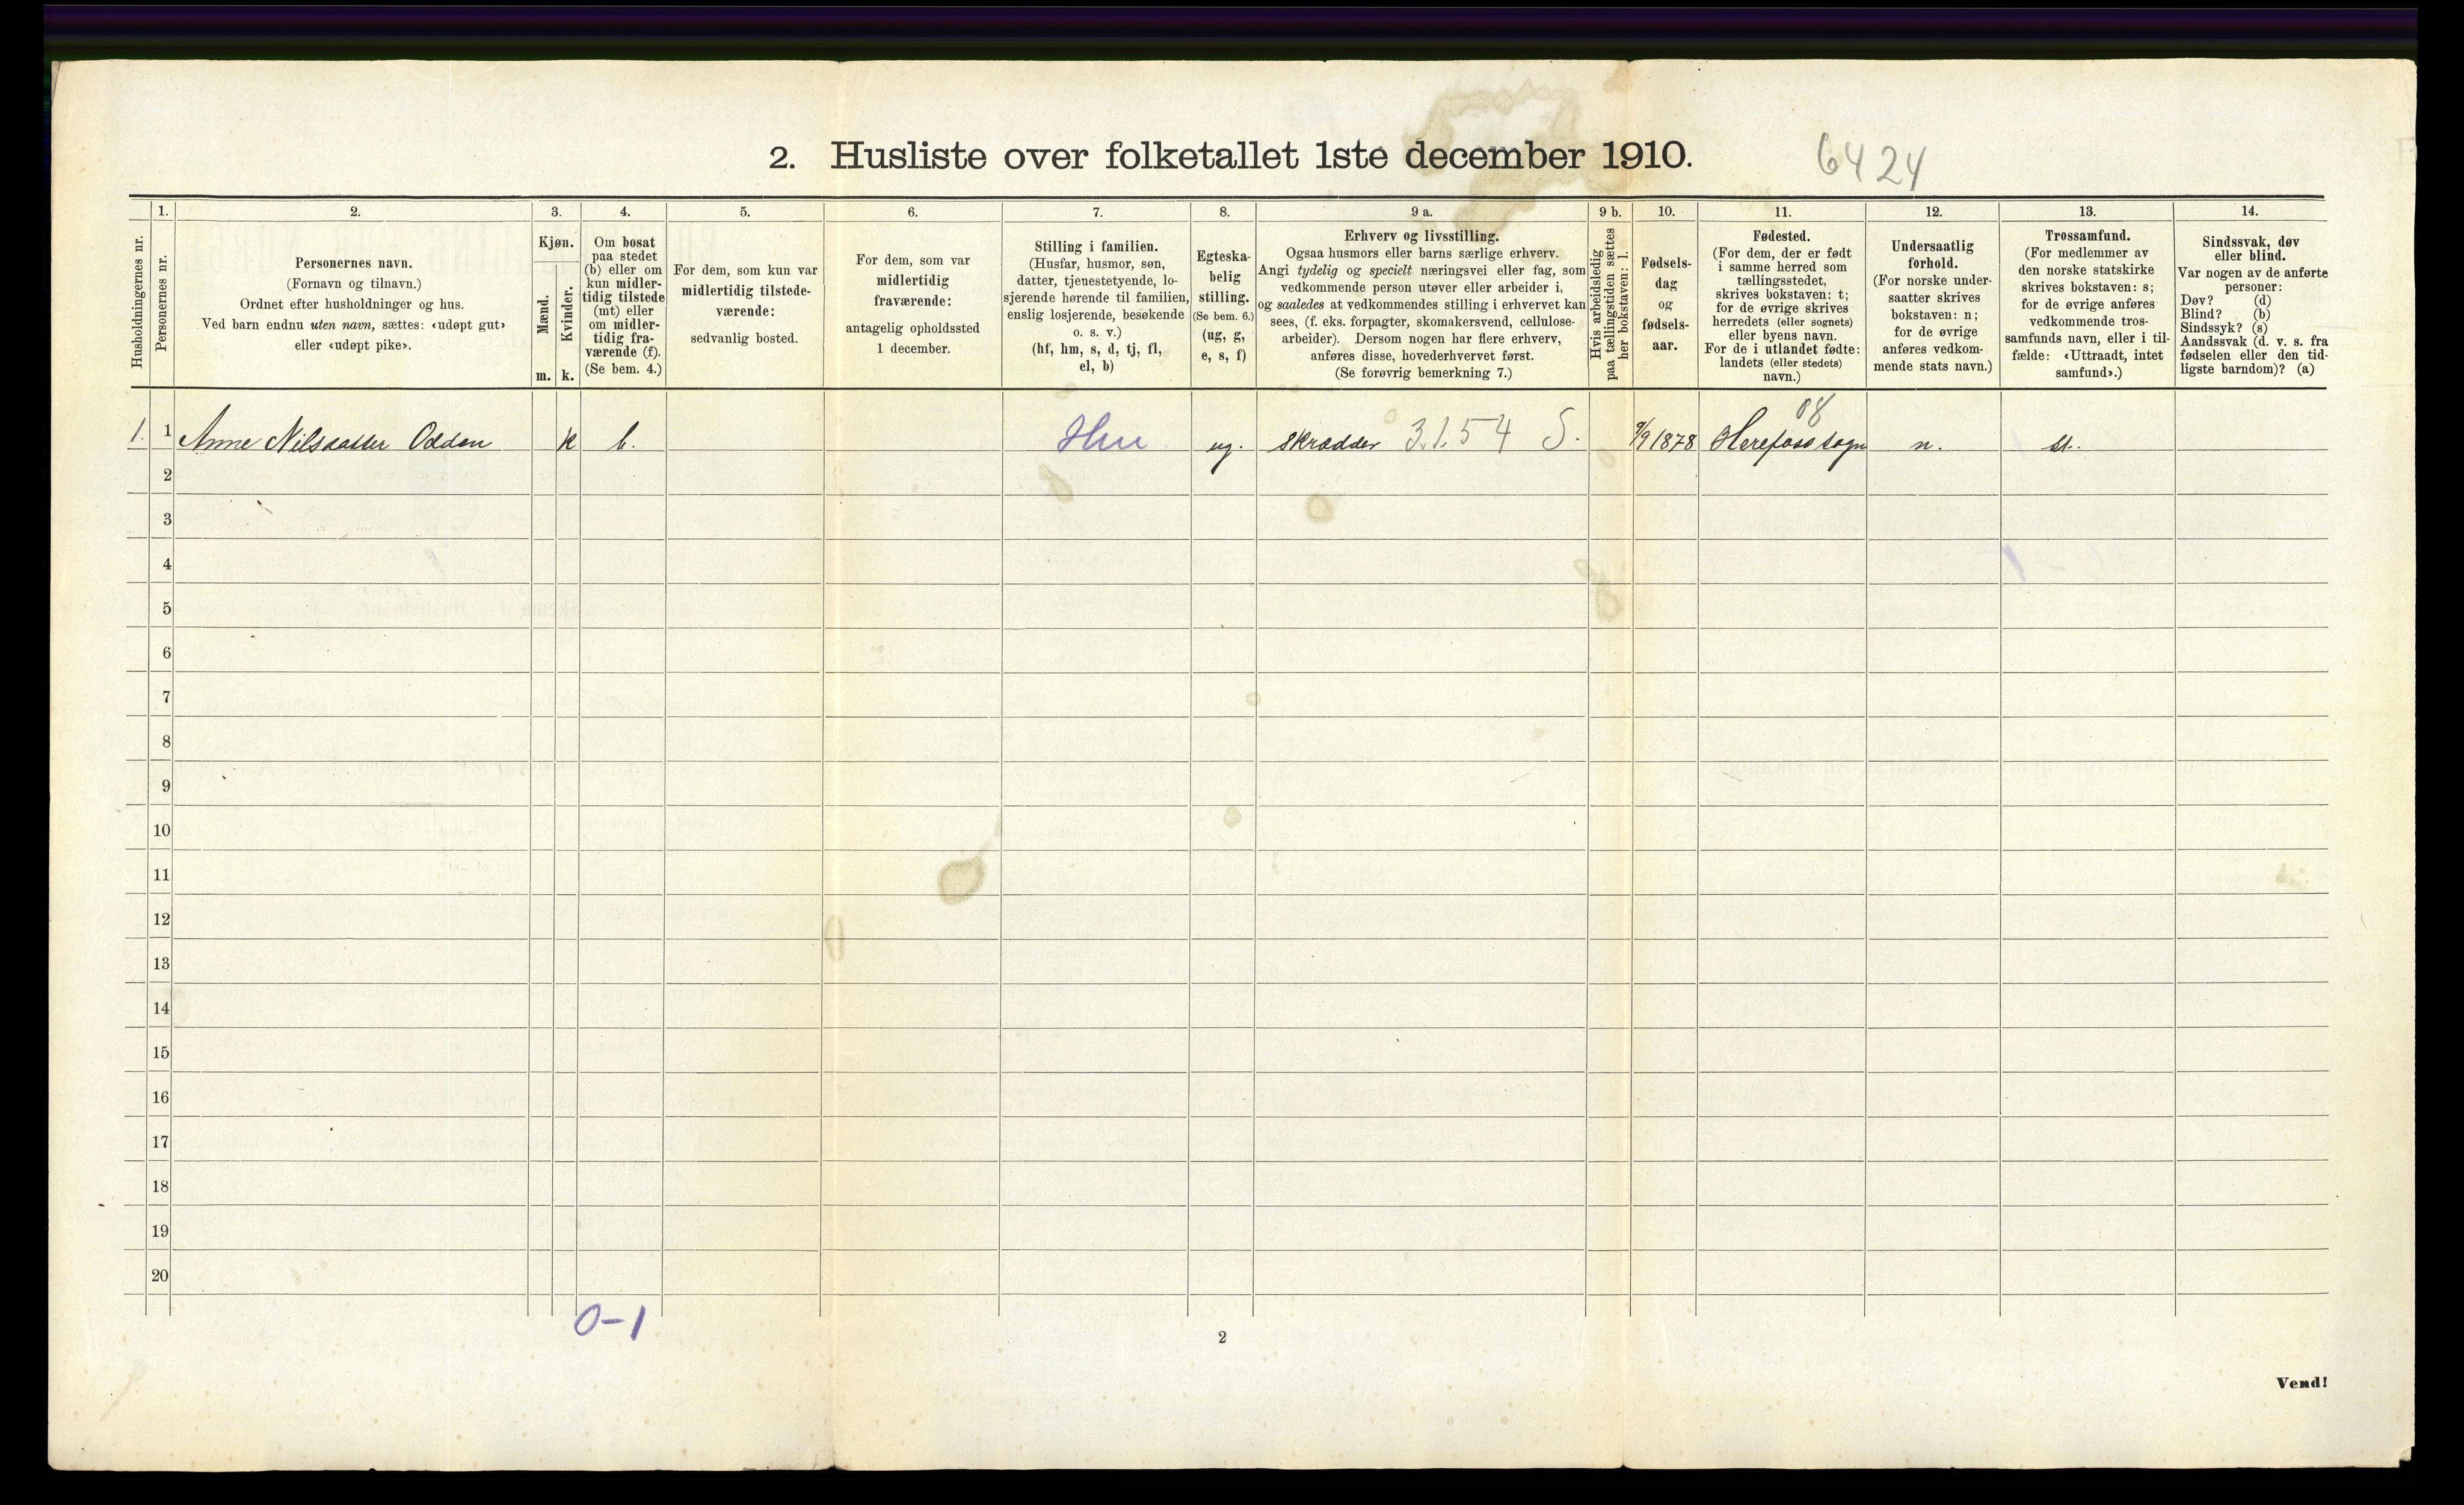 2. Husliste over folketallet 1ste december 1910.
6424
Husholdningernes nr.
1.
Personernes nr.
2.
Personernes navn.
(Fornavn og tilnavn.)
Ordnet efter husholdninger og hus.
Ved barn endnu uten navn, sættes: «udøpt gut»
eller «udøpt pike».
3.
Kjøn.
Mænd.
Kvinder.
m. k.
4.
Om bosat
paa stedet
(b) eller om
kun midler-
tidig tilstede
(mt) eller
om midler-
tidig fra-
værende (f).
(Se bem. 4.)
5.
For dem, som kun var
midlertidig tilstede-
værende:
sedvanlig bosted.
6.
For dem, som var
midlertidig
fraværende:
antagelig opholdssted
1 december.
7.
Stilling i familien.
(Husfar, husmor, søn,
datter, tjenestetyende, lo-
sjerende hørende til familien,
enslig losjerende, besøkende
o. s. v.)
(hf, hm, s, d, tj, fl,
el, b)
8.
Egteska-
belig
stilling.
(Se bem. 6.)
(ug, g,
e, s, f)
9 a.
Erhverv og livsstilling.
Ogsaa husmors eller barns særlige erhverv.
Angi tydelig og specielt næringsvei eller fag, som
vedkommende person utøver eller arbeider i,
og saaledes at vedkommendes stilling i erhvervet kan
sees, (f. eks. forpagter, skomakersvend, cellulose-
arbeider). Dersom nogen har flere erhverv,
anføres disse, hovederhvervet først.
(Se forøvrig bemerkning 7.)
9 b.
Hvis arbeidsledig
paa tællingstiden sættes
her bokstaven: l.
10.
Fødsels-
dag
og
fødsels-
aar.
11.
Fødested.
(For dem, der er født
i samme herred som
tællingsstedet,
skrives bokstaven: t;
for de øvrige skrives
herredets (eller sognets)
eller byens navn.
For de i utlandet fødte:
landets (eller stedets)
navn.)
12.
Undersaatlig
forhold.
(For norske under-
saatter skrives
bokstaven: n;
for de øvrige
anføres vedkom-
mende stats navn.)
13.
Trossamfund.
(For medlemmer av
den norske statskirke
skrives bokstaven: s;
for de øvrige anføres
vedkommende tros-
samfunds navn, eller i til-
fælde: «Uttraadt, intet
samfund».)
14.
Sindssvak, døv
eller blind.
Var nogen av de anførte
personer:
Døv? (d)
Blind? (b)
Sindssyk? (s)
Aandssvak (d. v. s. fra
fødselen eller den tid-
ligste barndom)? (a)
08
1. 1 Anne Nilsdatter Odden k b. ug. skrædder 3.1.54 S. 9/9 1878 Herefoss sogn n. st.
2
3
4
5
6
7
8
9
10
11
12
13
14
15
16
17
18
19
20
0-1
2
Vend!